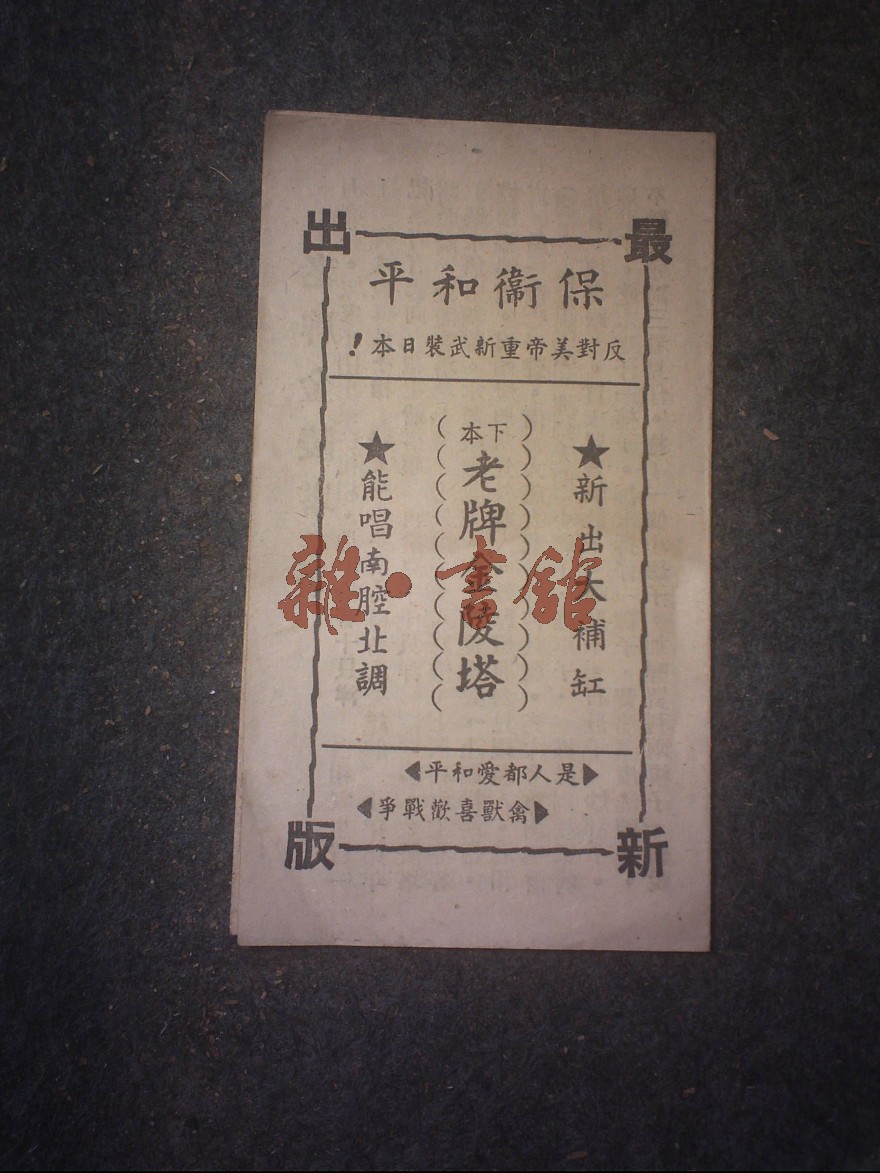 最新出版
保衞和平
反對美帝重新武裝日本！
★新出大補缸
下本
老牌金陵塔
★能唱南腔北調
▶是人都愛和平◀
▶禽獸喜歡戰爭◀
雜·書館